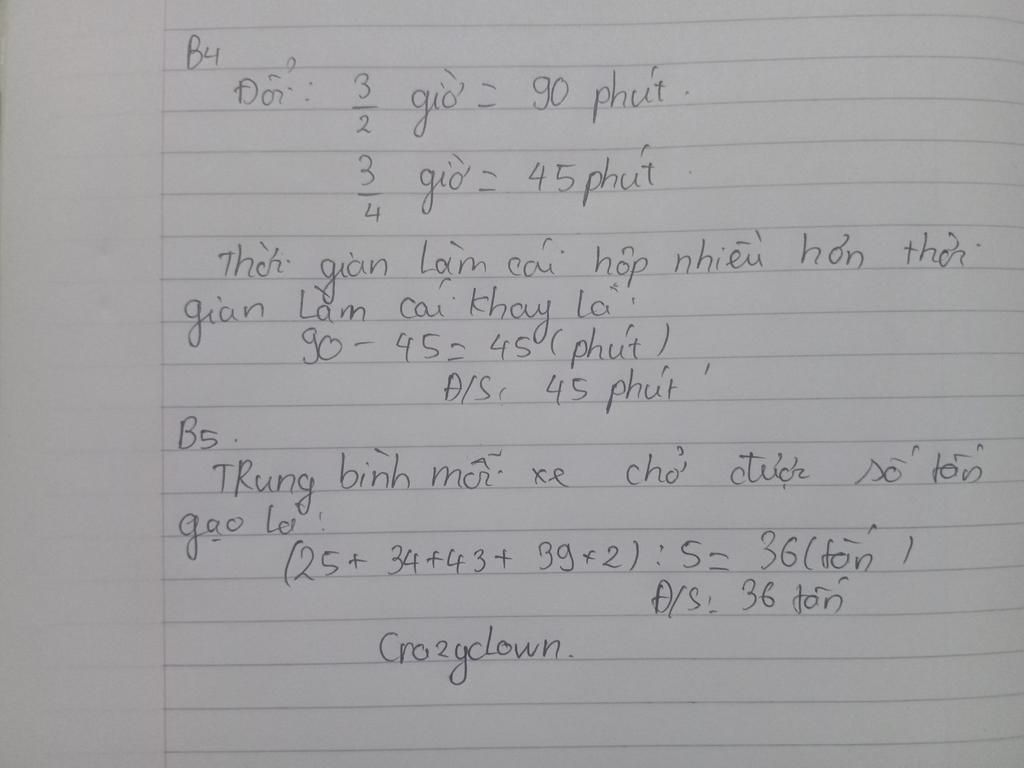 B4
Đổi: 3/2 giờ = 90 phút.
3/4 giờ = 45 phút
Thời gian làm cái hộp nhiều hơn thời
gian làm cái khay là:
90 - 45 = 45 (phút)
Đ/S: 45 phút
B5.
TRung bình mỗi xe chở được số tấn
gạo là:
(25 + 34 + 43 + 39 × 2) : 5 = 36 (tấn)
Đ/S: 36 tấn
Crazyclown.